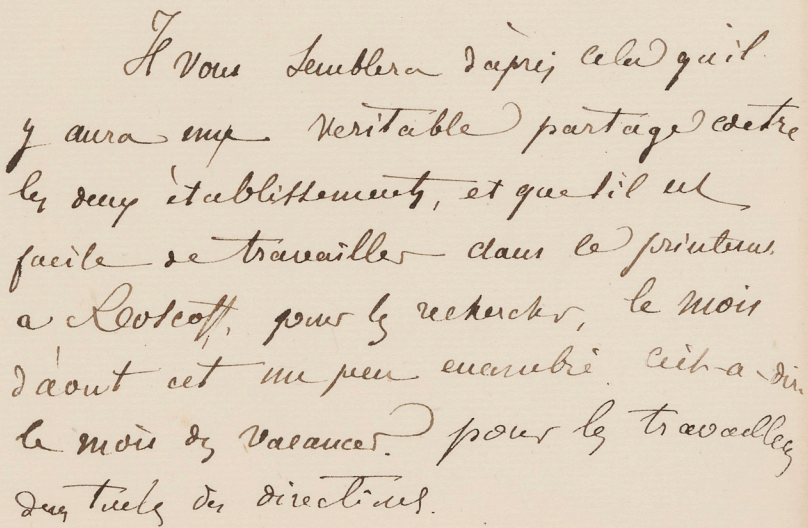 Il vous semblera d'après cela qu'il
y aura un veritable partage entre
les deux établissements, et que s'il est
facile de travailler dans le printems
a Roscoff, pour les recherches, le mois
d'aout est un peu encombré. C'est-a-dire
le mois des vacances. pour les travailleurs
dans toutes les directions.